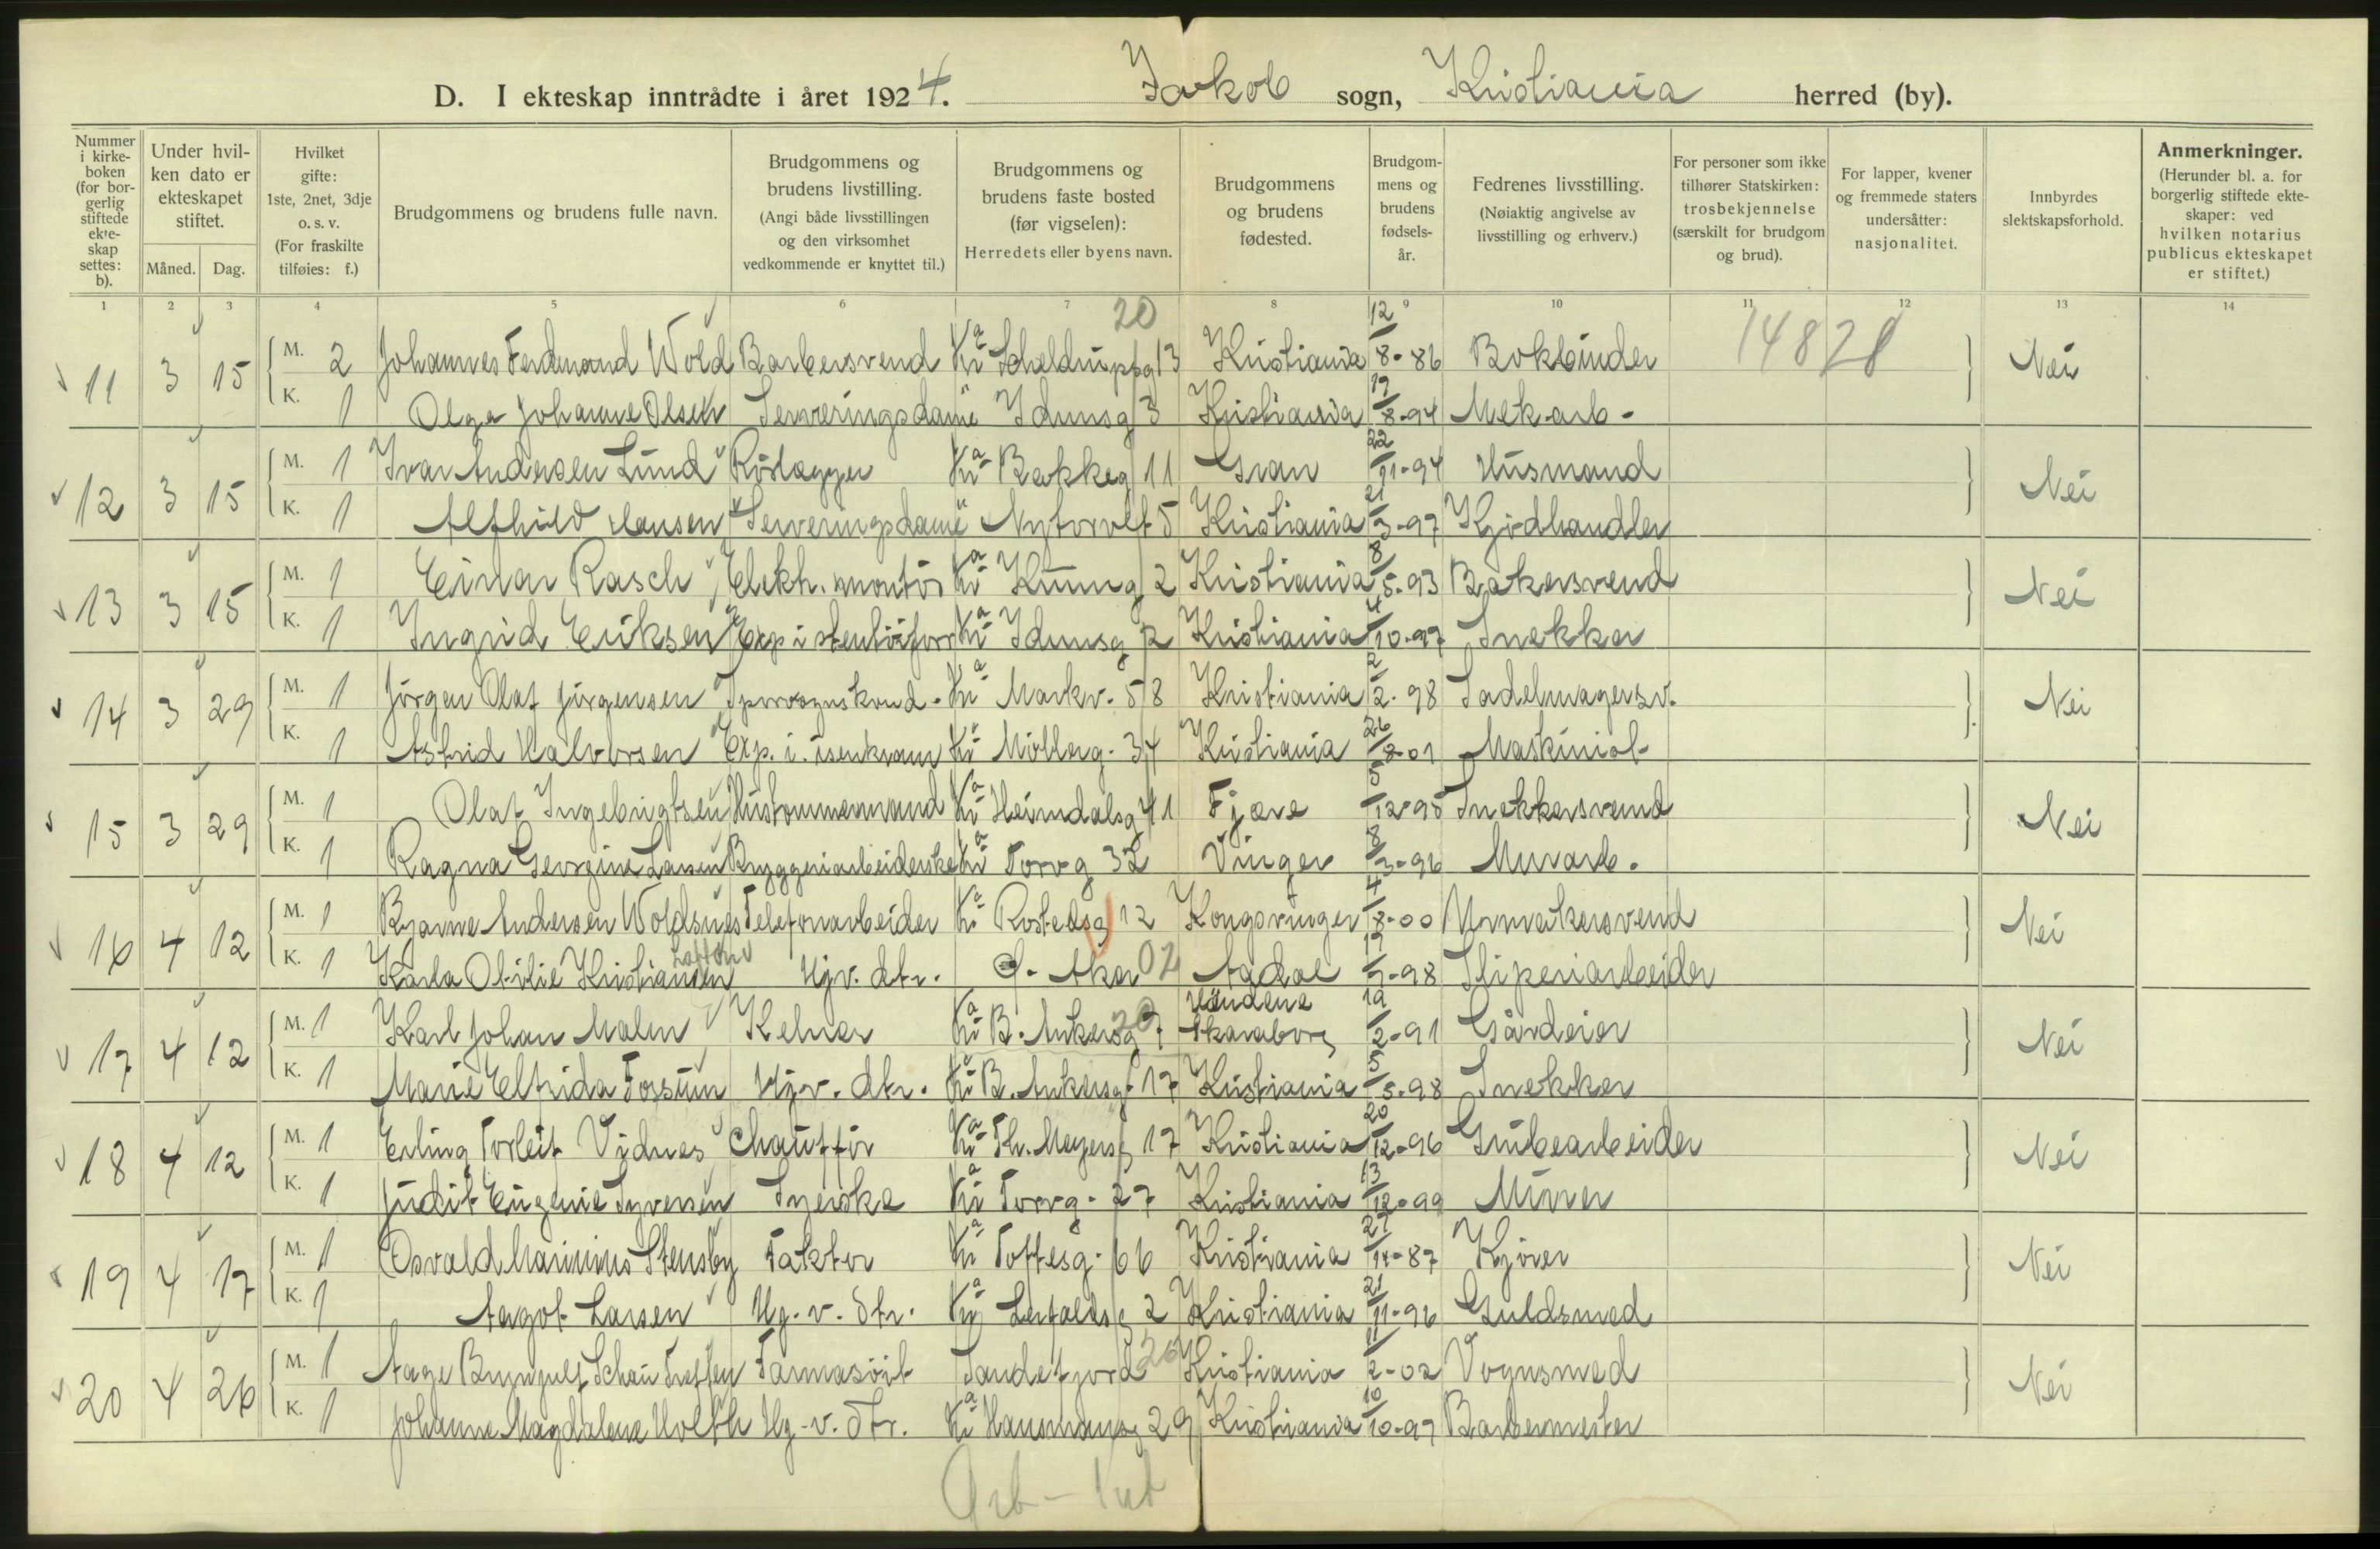 D. I ekteskap inntrådte i året 1924. Jakob sogn, Kristiania herred (by).
Nummer i kirkeboken (for borgerlig stiftede ekteskap settes: b).
Under hvilken dato er ekteskapet stiftet.
Måned. Dag.
Hvilket gifte: 1ste, 2net, 3dje o. s. v. (For fraskilte tilføies: f.)
Brudgommens og brudens fulle navn.
Brudgommens og brudens livstilling. (Angi både livsstillingen og den virksomhet vedkommende er knyttet til.)
Brudgommens og brudens faste bosted (før vigselen): Herredets eller byens navn.
Brudgommens og brudens fødested.
Brudgommens og brudens fødselsår.
Fedrenes livsstilling. (Nøiaktig angivelse av livsstilling og erhverv.)
For personer som ikke tilhører Statskirken: trosbekjennelse (særskilt for brudgom og brud).
For lapper, kvener og fremmede staters undersåtter: nasjonalitet.
Innbyrdes slektskapsforhold.
Anmerkninger. (Herunder bl. a. for borgerlig stiftede ekteskaper: ved hvilken notarius publicus ekteskapet er stiftet.)
1 2 3 4 5 6 7 8 9 10 11 12 13 14
20
11 3 15 M. 2 Johannes Ferdinand Wold Barbersvend Kra Scheldrupsg 13 Kristiania 12/8-86 Bokbinder 14828 Nei
K. 1 Olga Johanne Olsen Serveringsdame " Idunsg 3 Kristiania 19/8-94 Mek. arb.
12 3 15 M. 1 Ivar Andersen Lund Rørlægger Kra Bakkeg 11 Gran 22/11-94 Husmand Nei
K. 1 Alfhild Hansen Serveringsdame " Nytorvet 5 Kristiania 21/3-97 Kjødhandler
13 3 15 M. 1 Einar Rasch Elektr. montør Kra Kummg 2 Kristiania 8/5-93 Bakersvend Nei
K. 1 Ingrid Eriksen Exp i Kra Idunsg 2 Kristiania 4/10-97 Snekker
14 3 29 M. 1 Jørgen Olaf Jørgensen Sporvognskond. Kra Markv. 58 Kristiania 2/2-98 Sadelmagersv. Nei
K. 1 Astrid Halvorsen Exp. i. isenkram Kra Møllerg. 34 Kristiania 26/8-01 Maskinist
15 3 29 M. 1 Olaf Ingebrigtsen Hustømmermand Kra Heimdalsg 41 Fjære 5/12-95 Snekkersvend Nei
K. 1 Ragna Georgine Larsen Bryggeriarbeiderske Kra Torvg 32 Vinger 8/3-96 Murarb.
16 4 12 M. 1 Bjarne Andersen Woldsnes Telefonarbeider Kra Rostedsg 12 Kongsvinger 4/8-00 Urmakersvend Nei
K. 1 Karla Otilie Kristiansen Hjv. dtr. Ø. Aker 02 Aadal 17/9-98 Sliperiarbeider
17 4 12 M. 1 Karl Johan Malm Kelner Kra B. Ankersg 20 Skaraborg 19/2-91 Gårdeier Nei
K. 1 Marie Elfrida Fossum Hjv. dtr. Kra B. Ankersg. 17 Kristiania 5/5-98 Snekker
18 4 12 M. 1 Erling Torleif Vidnes Chauffør Kra Th. Meyersg 17 Kristiania 20/12-96 Grubearbeider Nei
K. 1 Judit Eugenie Syversen Syerske Kra Torvg. 27 Kristiania 13/12-99 Murer
19 4 17 M. 1 Osvald Marinius Stensby Faktor Kra Toftesg. 66 Kristiania 27/11-87 Kjører Nei
K. 1 Aagot Larsen Hj. v. dtr. Kra 2 Kristiania 21/11-96 Guldsmed
20 4 26 M. 1 Aage Brynjulf Schau Farmasøit Sandefjord 20 Kristiania 11/2-02 Vognsmed Nei
K. 1 Johanne Magdalene Holth Hj. v. dtr. Kra Hausmansg 29 Kristiania 10/10-97 Barbermester